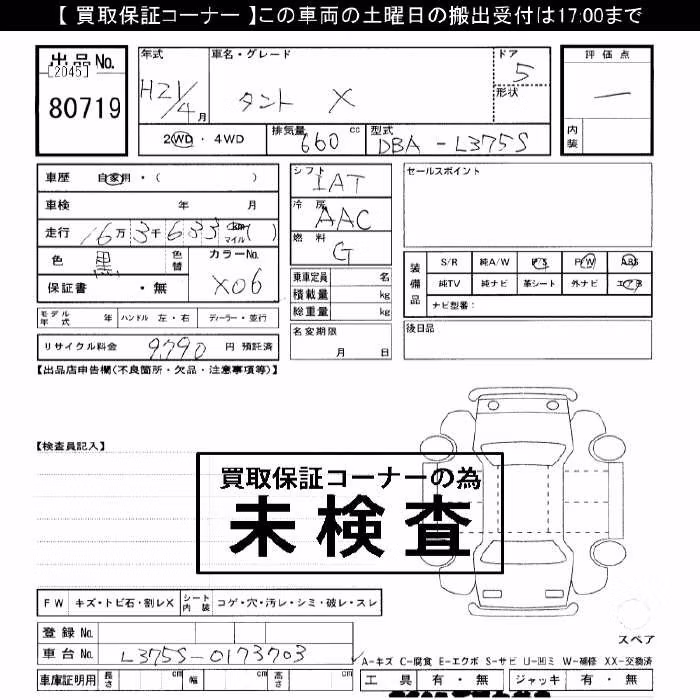 【 買取保証コーナー 】この車両の土曜日の搬出受付は17:00まで
出品No.
[2045]
80719
年式
H21/4月
車名・グレード
タント X
ドア
5
形状
評価点
一
内装
2WD・4WD
排気量
660 cc
型式
DBA-L375S
車歴 自家用・( )
車検 年 月
走行 16万3千633 km マイル ( )
色 黒 色替
カラーNo.
X06
保証書 ・無
シフト
IAT
冷房
AAC
燃料
G
乗車定員 名
積載量 kg
総重量 kg
名変期限
月 日
セールスポイント
装備品
S/R 純A/W P/S P/W ABS
純TV 純ナビ 革シート 外ナビ エアB
ナビ型番：
後日品
モデル年式 年 ハンドル 左・右 ディーラー・並行
リサイクル料金 9,790 円 預託済
【出品店申告欄(不良箇所・欠品・注意事項等)】
【検査員記入】
買取保証コーナーの為
未検査
FW キズ・トビ石・割レX シート内装 コゲ・穴・汚レ・シミ・破レ・スレ
スペア
登録No.
車台No. L375S-0173703
A-キズ C-腐食 E-エクボ S-サビ U-凹ミ W-補修 XX-交換済
車庫証明用 長さ cm 幅 cm 高さ cm
工具 有・無 ジャッキ 有・無